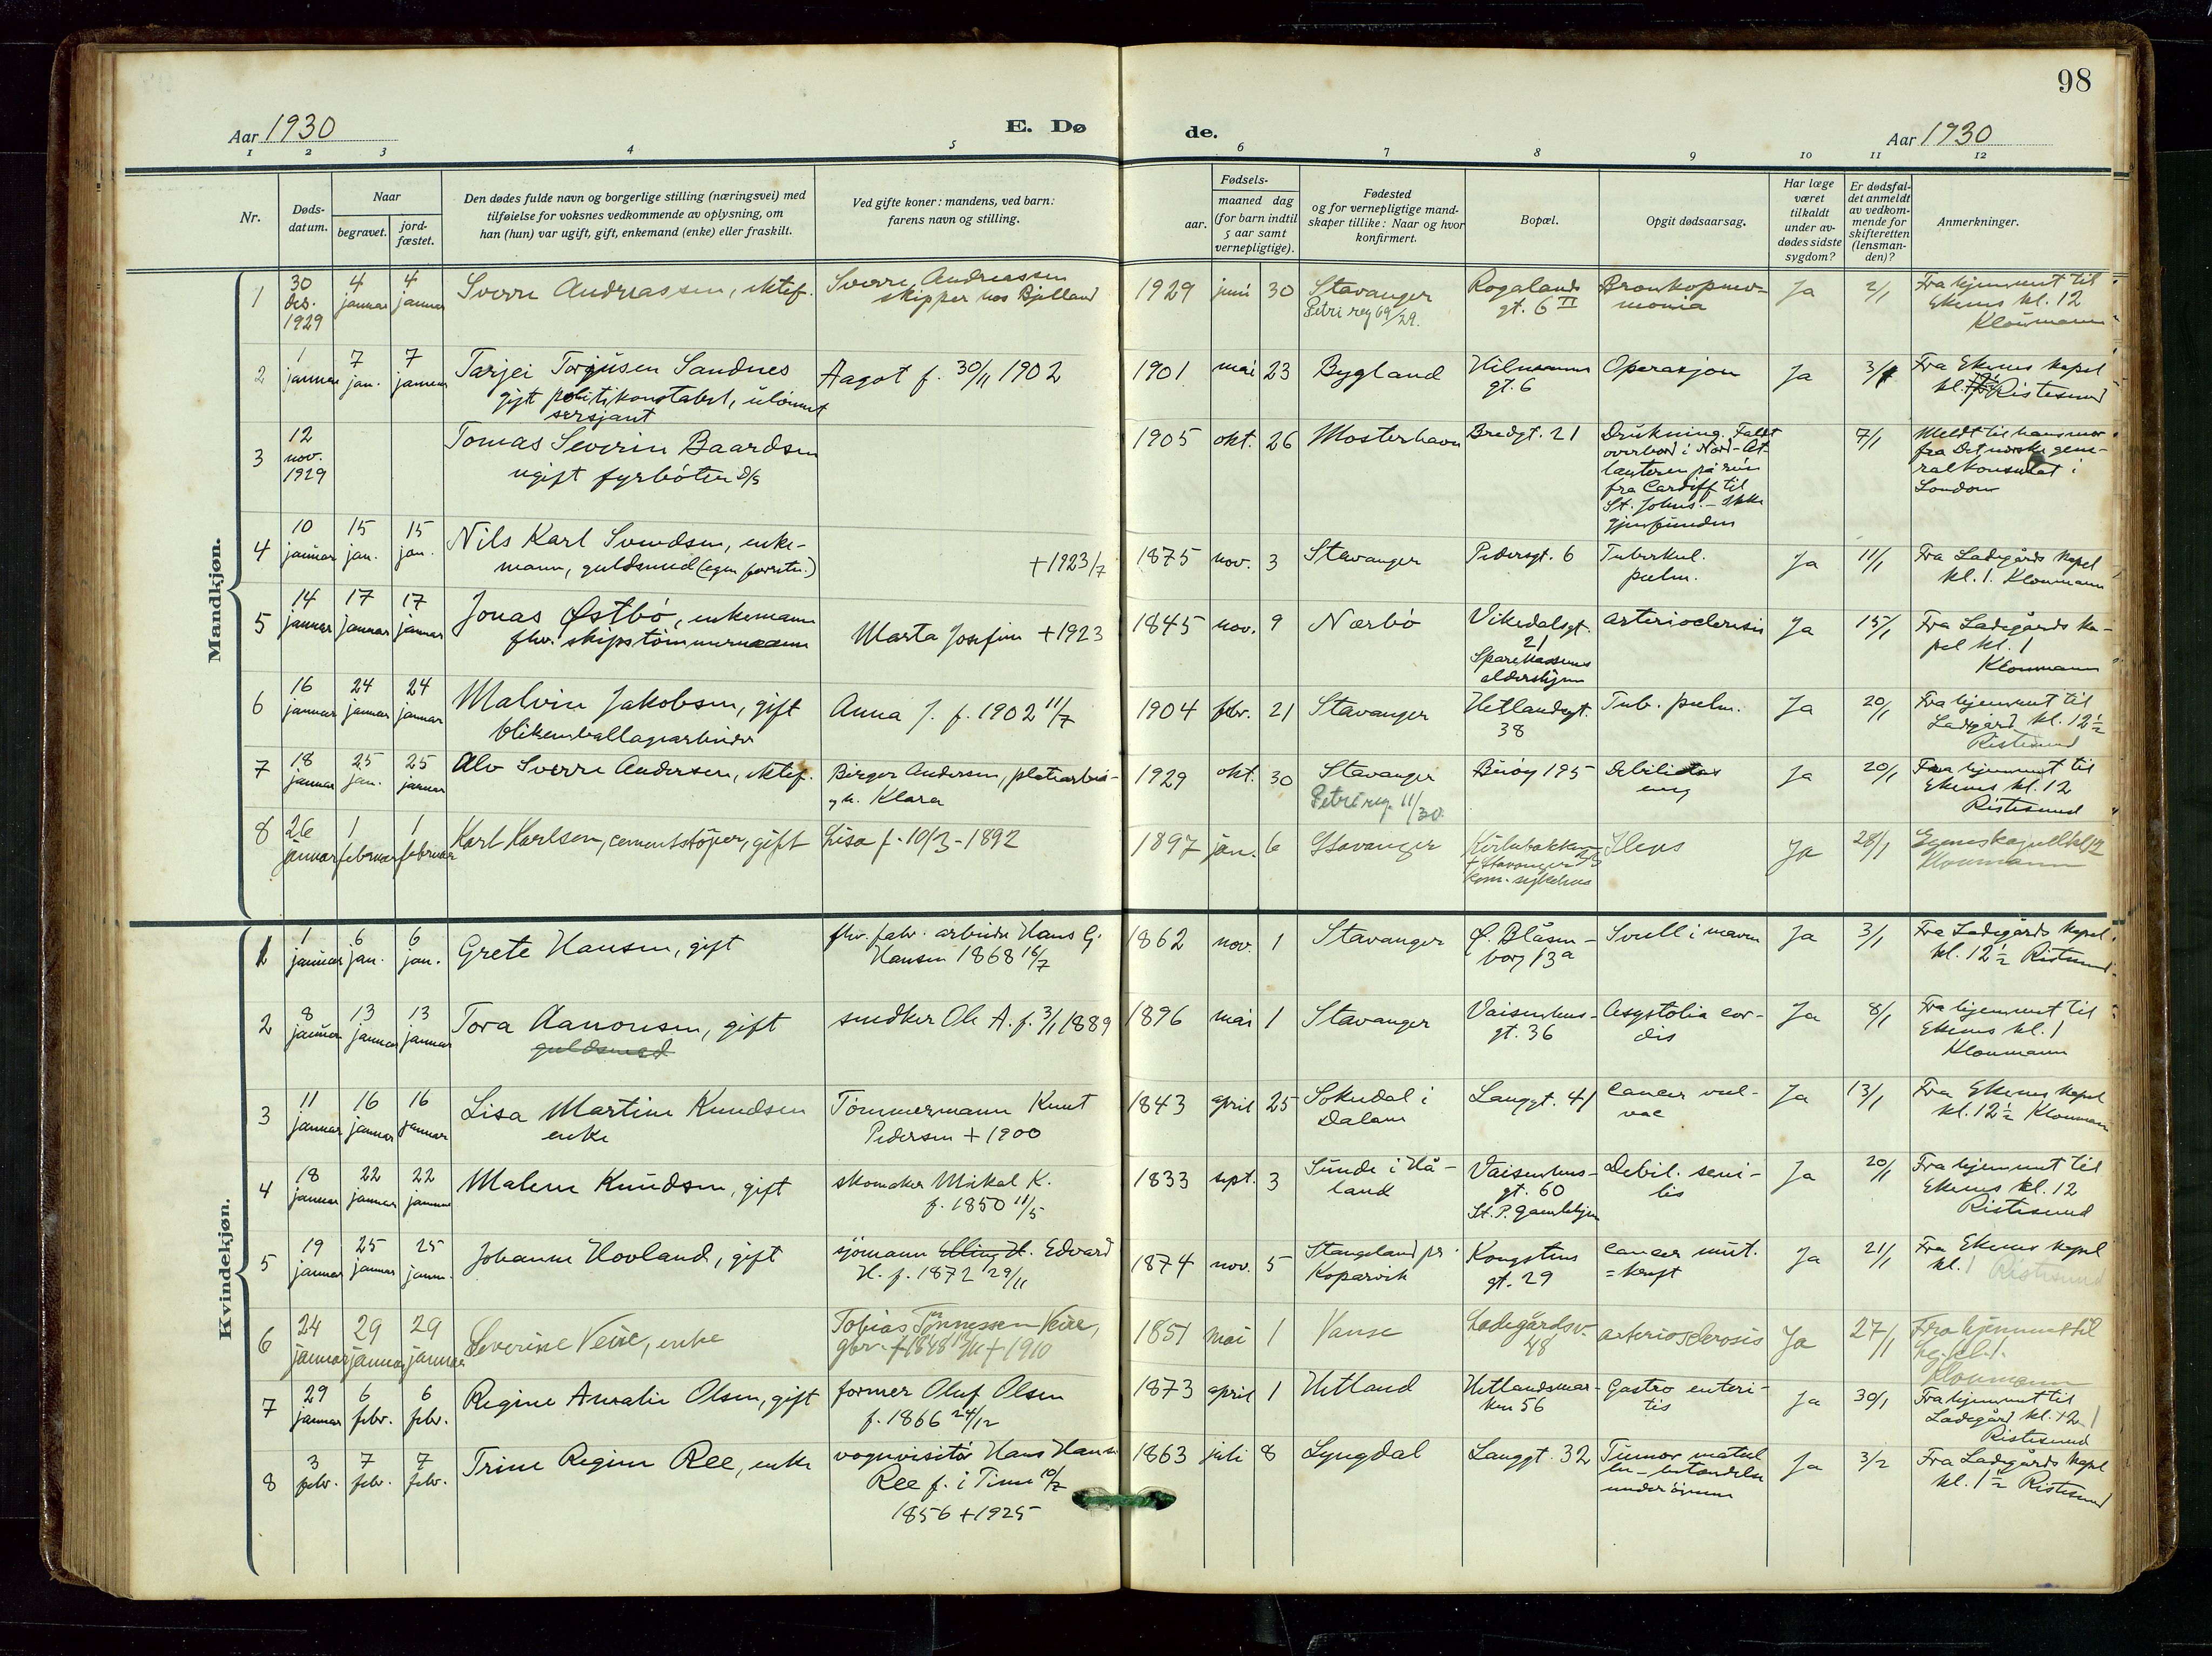 98
Aar 1930
E. Dø de.
Aar 1930
1 2 3 4 5 6 7 8 9 10 11 12
Nr.
Døds-
datum.
Naar
begravet.
jord-
fæstet.
Den dødes fulde navn og borgerlige stilling (næringsvei) med
tilføielse for voksnes vedkommende av oplysning, om
han (hun) var ugift, gift, enkemand (enke) eller fraskilt.
Ved gifte koner: mandens, ved barn:
farens navn og stilling.
Fødsels-
aar.
maaned dag
(for barn indtil
5 aar samt
vernepligtige).
Fødested
og for vernepligtige mand-
skaper tillike: Naar og hvor
konfirmert.
Bopæl.
Opgit dødsaarsag.
Har læge
været
tilkaldt
under av-
dødes sidste
sygdom?
Er dødsfal-
det anmeldt
av vedkom-
mende for
skifteretten
(lensman-
den)?
Anmerkninger.
Mandkjøn.
1
30
des.
1929
4
januar
4
januar
Sverre Andreassen, ektef.
Sverre Andreassen
skipper hos Bjelland
1929 juni 30
Stavanger
Petri reg 69/29.
Rogalands
gt. 6 II
Bronkopnev-
monia
Ja
2/1
Fra hjemmet til
Ekenes kl. 12
Kloumann
2
1
januar
7
jan.
7
januar
Tarjei Torjusen Sandnes
gift politikonstabel, ulønnet
sersjant
Aagot f. 30/11 1902
1901 mai 23
Bygland
gt. 6
Operasjon
Ja
3/1
Fra Ekenes kapel
kl. Ristesund
3
12
nov.
1929
Tomas Severin Baardsen
ugift fyrbøter d/s
1905 okt. 26
Mosterhavn
Bredgt. 21
Drukning. Faldt
overbord i Nord-At-
lanteren på reise
fra Cardiff til
St. Johns. - Ikke
gjenfunden
7/1
Meldt til hans mor
fra Det norske gene-
ralkonsulat i
London
4
10
januar
15
jan.
15
jan.
Nils Karl Svendsen, enke-
mann, guldsmed (egen forretn.)
+1923/7
1875 nov. 3
Stavanger
Pedersgt. 6
Tuberkul.
pulm.
Ja
11/1
Fra Ladegårds kapel
kl. 1. Kloumann
5
14
januar
17
januar
17
januar
Jonas Østbø, enkemann
fhv. skipstømmermann
Marta Josefine +1923
1845 nov. 9
Nærbø
Vikedalsgt.
21
Sparekassens
aldershjem
arteriosclerosis
Ja
15/1
Fra Ladegårds ka-
pel kl. 1
Kloumann
6
16
januar
24
januar
24
januar
Malvin Jakobsen, gift
blikemballagearbeider
Anna J. f. 1902 11/7
1904 febr. 21
Stavanger
Hetlandsgt.
38
Tub. pulm.
Ja
20/1
Fra hjemmet til
Ladegård kl. 12½
Ristesund
7
18
januar
25
jan.
25
januar
Alv Sverre Andersen, ektef.
Birger Andersen, platearbei-
og h. Klara
1929 okt. 30
Stavanger
Petri reg. 11/30.
Buøy 195
Debilitas
cong
Ja
20/1
Fra hjemmet til
Ekenes kl. 12
Ristesund
8
26
januar
1
februar
1
februar
Karl Karlsen, cementstøper, gift
Lisa f. 10/3 - 1892
1897 jan. 6
Stavanger
Kirkebakken
+ Stavanger
kom. sykehus
Ileus
Ja
28/1
Egenes kapell kl 12
Kloumann
Kvindekjøn.
1
1
januar
6
jan.
6
jan.
Grete Hansen, gift
fhv. fabr. arbeider Hans G.
Hansen 1868 16/7
1862 nov. 1
Stavanger
Ø. Blåsen-
borg 13a
Svull i maven
Ja
3/1
Fra Ladegårds kapel
kl. 12½ Ristesund
2
8
januar
13
januar
13
januar
Tora Aanonsen, gift
guldsmed
snedker Ole A. f. 3/1 1889
1896 mai 1
Stavanger
Vaisenhus-
gt. 36
Asystolia cor-
dis
Ja
8/1
Fra hjemmet til
Ekenes kl. 1
Kloumann
3
11
januar
16
januar
16
januar
Lisa Martine Knudsen
enke
Tømmermann Knut
Pedersen + 1900
1843 april 25
Sokndal i
Dalane
Langgt. 41
Cancer vul-
vae
Ja
13/1
Fra Ekenes kapel
kl. 12½ Kloumann
4
18
januar
22
januar
22
januar
Malene Knudsen, gift
skomaker Mikal K.
f. 1850 11/5
1833 sept. 3
Sunde i Hå-
land
Vaisenhus-
gt. 60
St. P. gamlehjem
Debil. seni-
lis
Ja
20/1
Fra hjemmet til
Ekenes kl. 12
Ristesund
5
19
januar
25
januar
25
janu.
Johanne Hovland, gift
sjømann Elling H. Edvard
H. f. 1872 29/11
1874 nov. 5
Stangeland pr.
Kopervik
Kongstens
gt. 29
Cancer
= kreft
Ja
21/1
Fra Ekenes kapel
kl. 1 Ristesund
6
24
januar
29
januar
29
januar
Severine Veire, enke
Tobias Tønnessen Veire,
gbr. +1910
1851 mai 1
Vanse
Ladegårdsv.
48
arteriosclerosis
Ja
27/1
Fra hjemmet til
Lg. kl. 1.
Kloumann
7
29
januar
6
febr.
6
febr.
Regine Amalie Olsen, gift
former Oluf Olsen
f. 1866 24/12
1873 april 1
Hetland
Hetlandsmar-
ken 56
Gastro enteri-
tis
Ja
30/1
Fra hjemmet til
Ladegård kl. 12 1
Ristesund
8
3
febr.
7
febr.
7
febr.
Trine Regine Ree, enke
vognvisitør Hans Hansen
Ree f. i Time 10/2
1856 + 1925
1863 juli 8
Lyngdal
Langgt. 32
Tumor
Ja
3/2
Fra Ladegårds kapel
kl. 1½ Ristesund